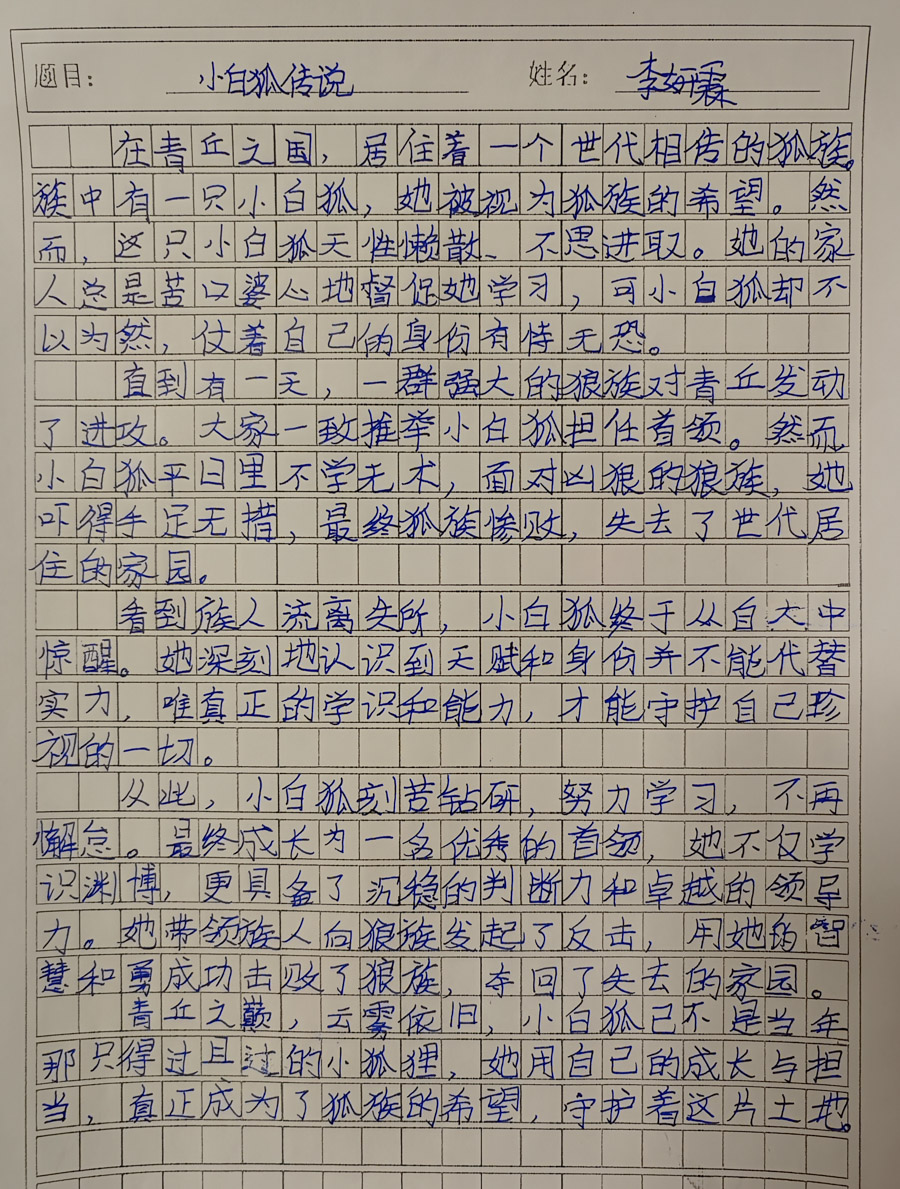 题目：小白狐传说 姓名：李妍霖
在青丘之国，居住着一个世代相传的狐族。
族中有一只小白狐，她被视为狐族的希望。然
而，这只小白狐天性懒散、不思进取。她的家
人总是苦口婆心地督促她学习，可小白狐却不
以为然，仗着自己的身份有恃无恐。
直到有一天，一群强大的狼族对青丘发动
了进攻。大家一致推举小白狐担任首领。然而
小白狐平日里不学无术，面对凶狠的狼族，她
吓得手足无措，最终狐族惨败，失去了世代居
住的家园。
看到族人流离失所，小白狐终于从自大中
惊醒。她深刻地认识到天赋和身份并不能代替
实力，唯真正的学识和能力，才能守护自己珍
视的一切。
从此，小白狐刻苦钻研，努力学习，不再
懈怠。最终成长为一名优秀的首领，她不仅学
识渊博，更具备了沉稳的判断力和卓越的领导
力。她带领族人向狼族发起了反击，用她的智
慧和勇成功击败了狼族，夺回了失去的家园。
青丘之巅，云雾依旧，小白狐已不是当年
那只得过且过的小狐狸，她用自己的成长与担
当，真正成为了狐族的希望，守护着这片土地。